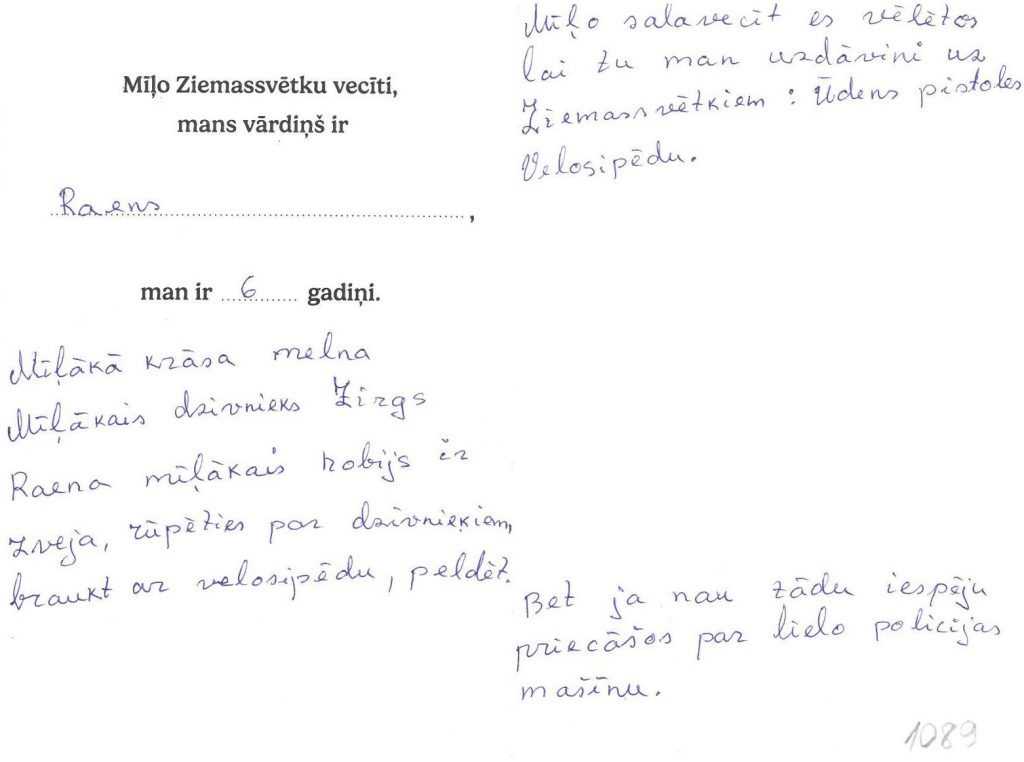 Mīļo Ziemassvētku vecīti,
mans vārdiņš ir
Raens,
man ir 6 gadiņi.
Mīļākā krāsa melna
Mīļākais dzivnieks Zirgs
Raena mīļākais hobijs ir
zveja, rūpēties par dzivnieķiem,
braukt ar velosipēdu, peldēt.
Mīļo salavecīt es vēlētos
lai tu man uzdāvini uz
Ziemassvētkiem : Ūdens pistoles
Velosipēdu.
Bet ja nau tādu iespēju
priecāšos par lielo policījas
mašīnu.
1089